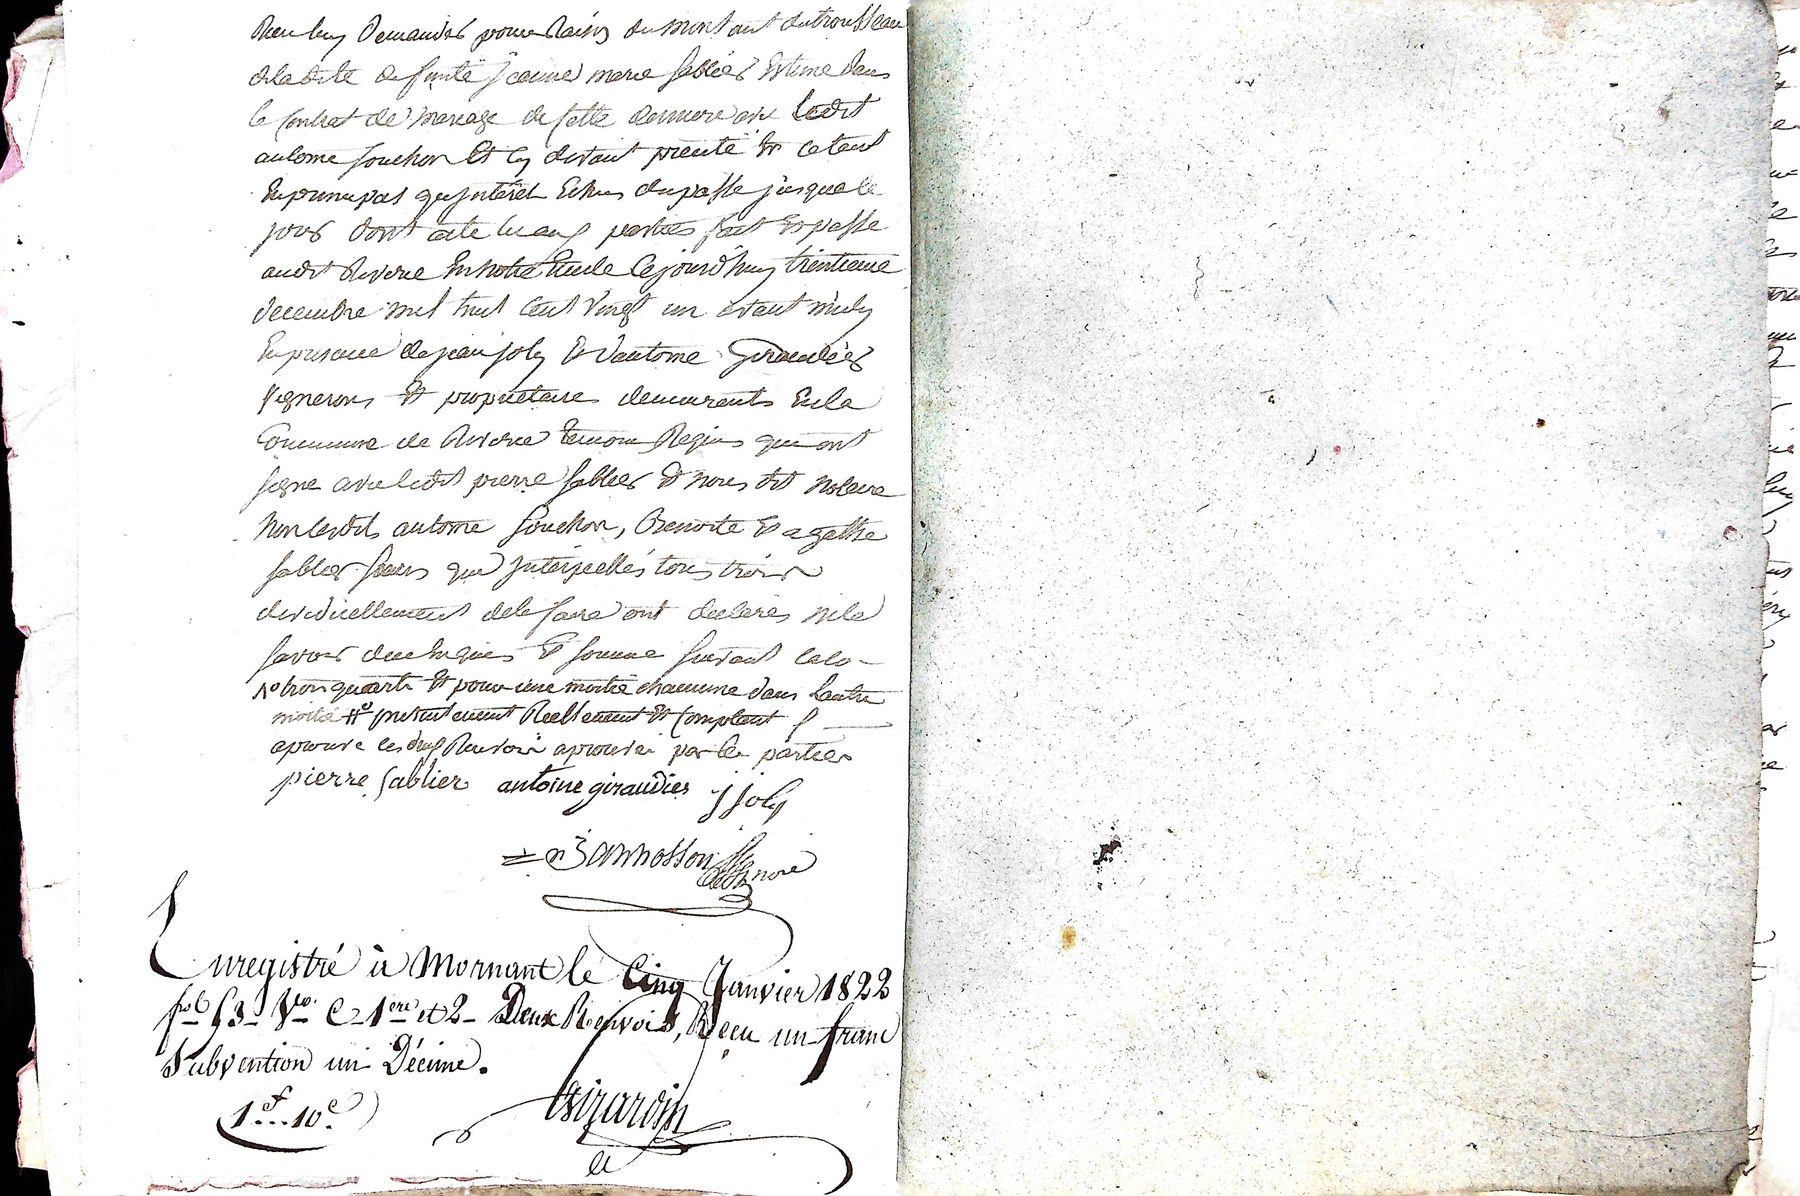 Rien luy demander pour Raison du montant du trousseau
de la dite defunte Jeanne marie Sablier Estimé dans
le Contrat de mariage de cette derniere avec ledit
antoine Souchon Et cy devant precité Et ce tant
En principal qu'Interet Echus du passé jusque a ce
jour dont acte lu aux parties fait Et passé
audit Riverie En notre Etude Cejourd'huy trentieme
decembre mil huit Cent Vingt un avant midy
En presence de jean joly Et d'antoine Giraudier
Vignerons Et proprietaires demeurants En la
Commune de Riverie temoins Requis qui ont
signé avec ledit pierre Sablier Et nous dit Notaire
Non lesdits antoine Souchon, Benoite Et agathe
Sablier Sœurs qui Interpellés tous trois in
dividuellement de le faire ont declarés ne le
Savoir duement requis Et Sommé Suivant la lo-
trois quarts Et pour une moitié chacune dans lautre
moitié presentement Reellement Et Comptant
aprouvé les deux Renvois aprouvés par les parties
pierre Sablier antoine giraudier j joly
Bannosson nore
Enregistré à Mornant le Cinq Janvier 1822
fol 53 Vto. C 1ere et 2 Deux Renvois, Recu un franc
Subvention un Décime.
1f...10c
Girardin